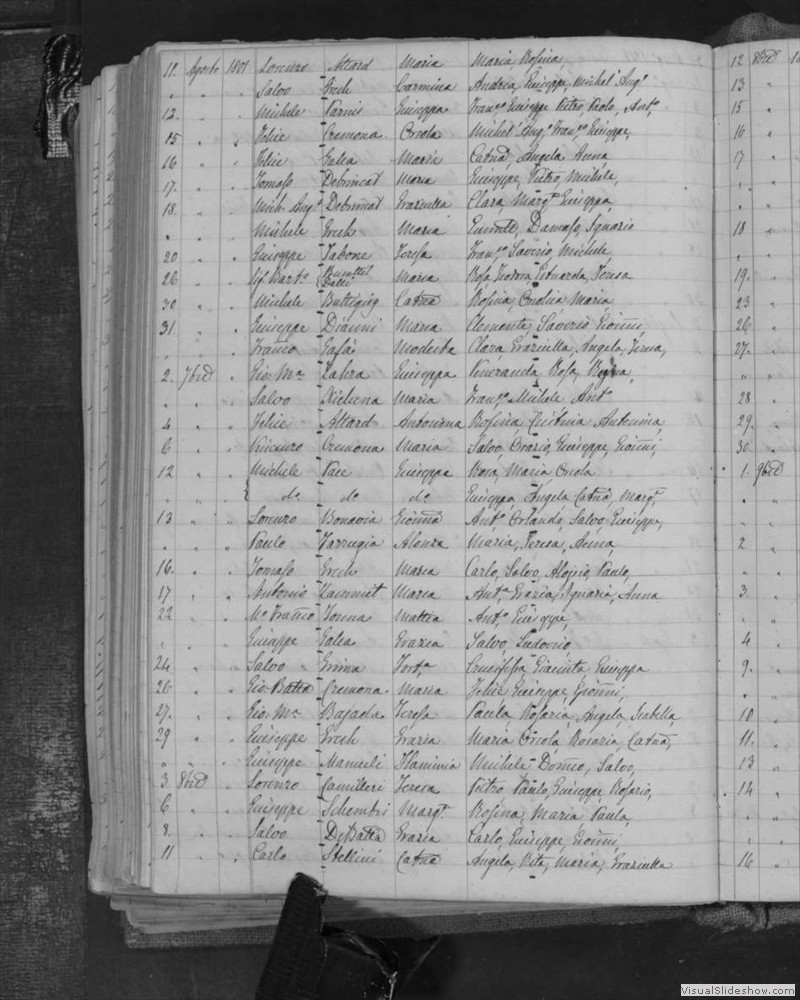 11. Agosto 1801 Lorenzo Attard Maria Maria Rosina,
" " " Salvo Grech Carmina Andrea, Giuseppe, Michel' Ang.o
12. " " Michele Parnis Giuseppa Fran.co Giuseppe Pietro, Paolo, Ant.o,
15 " " Felice Cremona Orsola Michel' Ang.o Fran.co Giuseppe,
16 " " Felice Galea Maria Catña, Angela Anna
17. " " Tomaso Debrincat Maria Giuseppe, Pietro, Michele,
18. " " Mich. Ang.o Debrincat Graziella Clara, Marg.ta Giuseppa,
" " " Michele Grech Maria Damaso, Ignazio
20 " " Giuseppe Tabone Teresa Fran.co Saverio, Michele,
26 " " Maria Rosa
30 " " Michele Buttigieg Catña Rosina, Maria
31. " " Giuseppe Maria Clemente, Saverio, Gioñni,
" " " Franco Gafà Modesta Clara, Graziella, Angela, Teresa,
2. 7bre " Gio: M.a Zahra Giuseppa Veneranda, Rosa,
" " " Salvo Xicluna Maria Fran.co Michele Ant.o
4 " " Felice Attard Antonina Rosina Antonina,
6 " " Vincenzo Cremona Maria Salvo, Orazio, Giuseppe, Gioñni,
12 " " Michele Pace Giuseppa Rosa, Maria Orsola
" " " do. do. do. Giuseppa, Angela Catña, Marg.ta
13 " " Lorenzo Bonavia Gioñna Ant.o Orlando, Salvo Giuseppe,
" " " Paulo Farrugia Alonza Maria, Teresa, Anna,
16. " " Tomaso Grech Maria Carlo, Salvo, Aloisio, Paulo,
17 " " Antonio Zammit Maria Ant.a Grazia, Ignazia, Anna
22 " " Mattea Ant.o Giuseppe,
" " " Giuseppe Galea Grazia Salvo, Ludovico
24. " " Salvo Grima Giacinta, Giuseppa
26 " " Gio: Batta Cremona Maria Felice Giuseppe Gioñni,
27. " " Gio: M.a Bajada Teresa Paula, Rosaria, Angela, Isabella
29 " " Giuseppe Grech Grazia Maria Orsola Rosaria, Catña,
" " " Giuseppe Mamueli Flaminia Michele Dom.co, Salvo,
3. 8bre " Lorenzo Camilleri Teresa Pietro Paulo, Giuseppe, Rosario,
6. " " Giuseppe Schembri Marg.ta Rosina, Maria Paula,
8. " " Salvo DeBatta Grazia Carlo, Giuseppe, Gioñni,
11 " " Carlo Stellini Catña Angela, Vita, Maria, Graziella
12 8bre
13 "
15 "
16 "
17 "
18 "
19. "
23 "
26. "
27. "
28 "
29. "
30. "
1. 9bre
2 "
3. "
4 "
9. "
10 "
11. "
13 "
14 "
16 "
VisualSlideshow.com